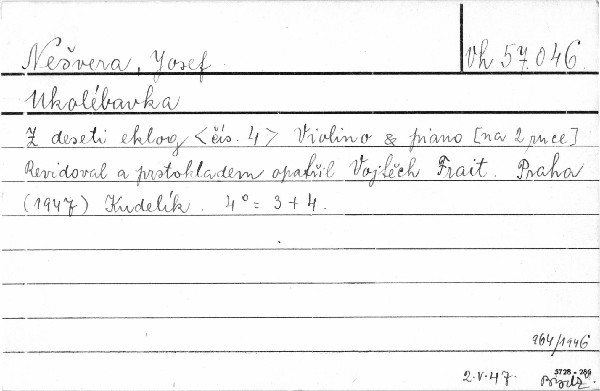 Nešvera, Josef.
Vh 57.046
Ukolébavka
Z deseti eklog <čís. 4> Violino & piano [na 2 ruce]
Revidoval a prstokladem opatřil Vojtěch Frait. Praha
(1947) Kudelík. 4° = 3 + 4.
964/1946
2.V.47.
3728-286